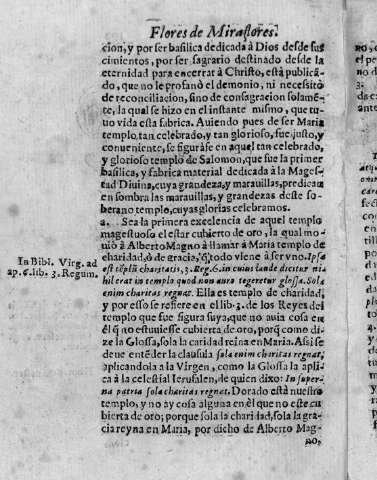 Flores de Miraflores.
cion, y por ser basilica dedicada à Dios desde sus
cimientos, por ser sagrario destinado desde la
eternidad para encerrar à Christo, està publicã-
do, que no le profanò el demonio, ni necesitò
de reconciliacion, sino de consagracion solamẽ-
te, la qual se hizo en el instante mismo, que tu-
uo vida esta fabrica. Auiendo pues de ser Maria
templo tan celebrado, y tan glorioso, fue justo, y
conueniente, se figurâse en aquel tan celebrado,
y glorioso templo de Salomon, que fue la primer
basilica, y fabrica material dedicada à la Mages-
tad Diuina, cuya grandeza, y marauillas, predican
en sombra las marauillas, y grandezas deste so-
berano templo, cuyas glorias celebramos.
2. Sea la primera excelencia de aquel templo
magestuoso el estar cubierto de oro, la qual mo-
uiò à Alberto Magno à llamar à Maria templo de
charidad, ò de gracia, q̃ todo viene à ser vno. Ipsa
est tẽplũ charitatis, 3. Reg. 6. in cuius laude dicitur ni-
hil erat in templo quod non auro tegeretur glossa. Sola
enim charitas regnat. Ella es templo de charidad,
y por esso se refiere en el lib. 3. de los Reyes del
templo que fue figura suya, que no auia cosa en
èl q̃ no estuuiesse cubierta de oro, porq̃ como di-
ze la Glossa, sola la caridad reina en Maria. Assi se
deue entẽder la clausula sola enim charitas regnat,
aplicandola à la Virgen, como la Glossa la apli-
ca à la celestial Ierusalen, de quien dixo: In super-
na patria sola charitas regnat. Dorado està nuestro
templo, y no ay cosa alguna en èl que no estè cu
bierta de oro; porque sola la charidad, sola la gra-
cia reyna en Maria, por dicho de Alberto Mag-
no,
In Bibl. Virg. ad
ap. 6. lib. 3. Regum.